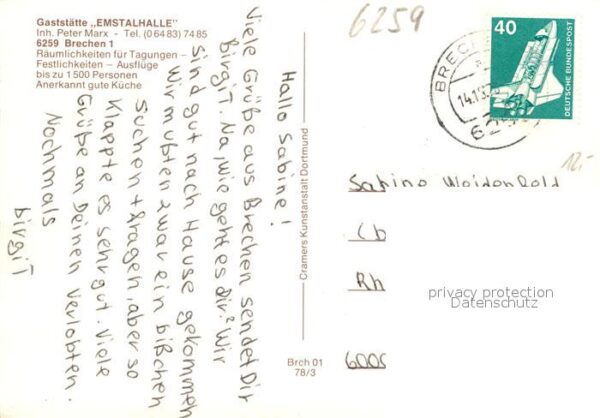 Gaststätte „EMSTALHALLE"
Inh. Peter Marx - Tel. (0 64 83) 74 85
6259 Brechen 1
Räumlichkeiten für Tagungen -
Festlichkeiten - Ausflüge
bis zu 1500 Personen
Anerkannt gute Küche
6259
40
DEUTSCHE BUNDESPOST
BRECHEN
12,-
Hallo Sabine!
Viele Grüße aus Brechen sendet Dir
BirgiT. Na, wie geht es Dir? Wir
sind gut nach Hause gekommen
Wir mußten zwar ein bißchen
suchen + fragen, aber so
klappte es sehr gut. Viele
Grüße an Deinen Verlobten.
Nochmals
BirgiT
Cramers Kunstanstalt Dortmund
Brch 01
78/3
Sabine
Rh
privacy protection
Datenschutz